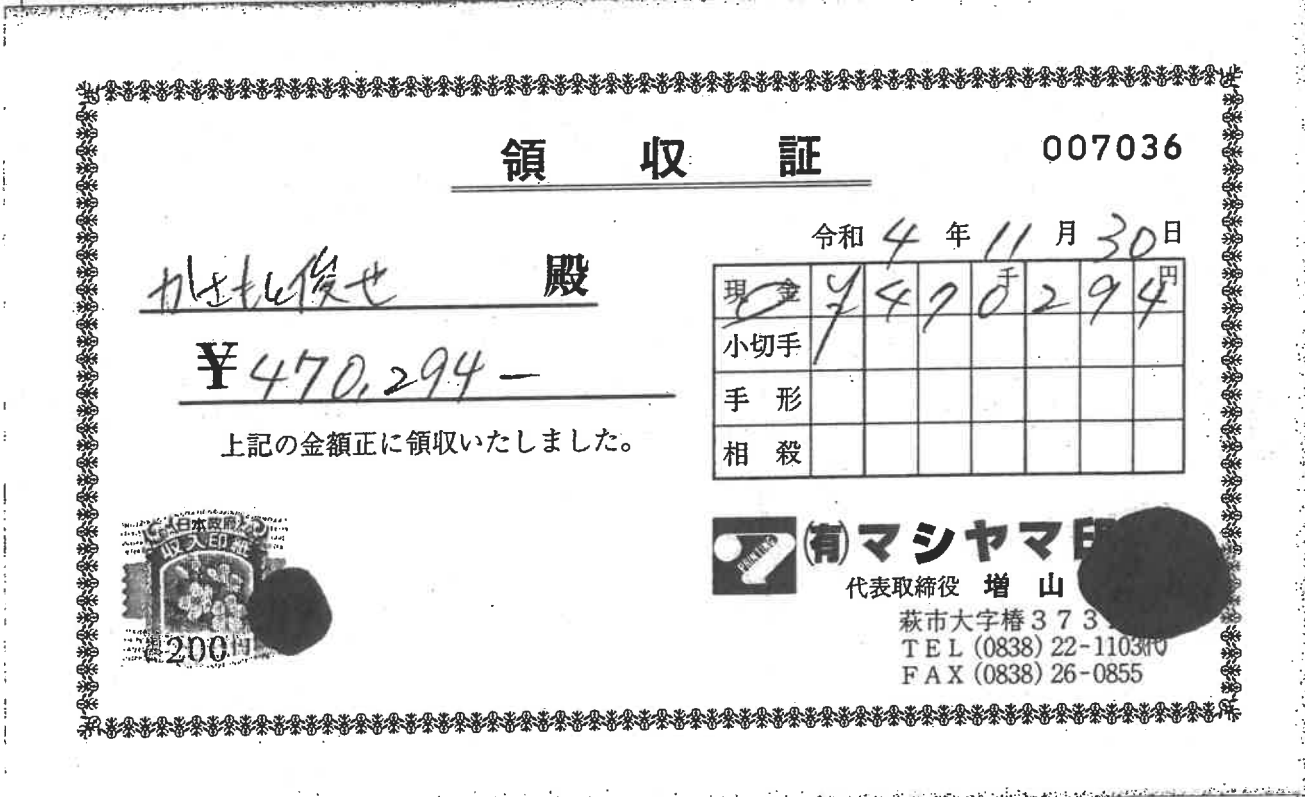 領収証
007036
令和4年11月30日
かさもと俊せ 殿
¥470,294-
上記の金額正に領収いたしました。
現金 ¥470千294円
小切手
手形
相殺
日本政府
収入印紙
200円
(有)マシヤマ印
代表取締役 増山
萩市大字椿373
TEL(0838)22-1103代
FAX(0838)26-0855